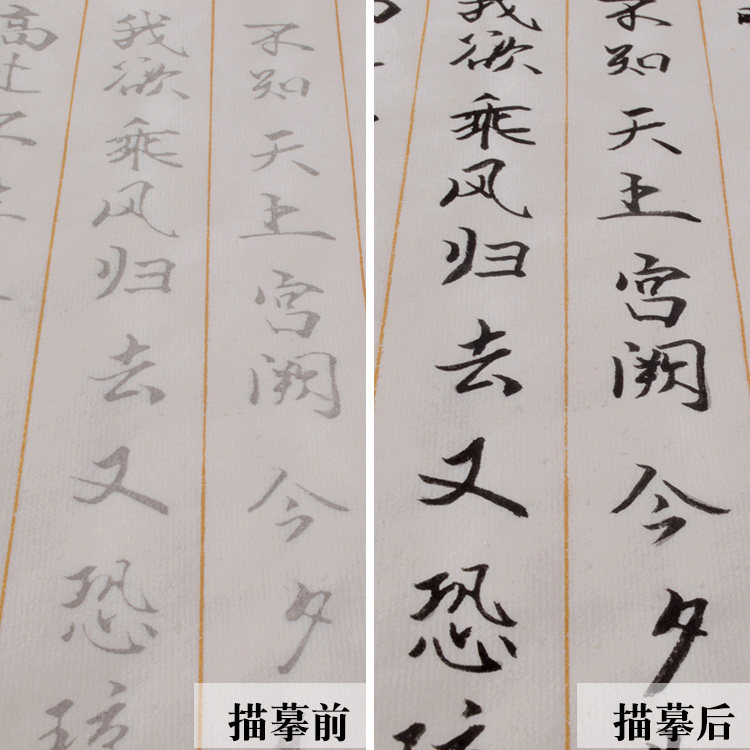 不知天上宫阙今夕
我欲乘风归去又恐
高处不胜
描摹前
不知天上宫阙今夕
我欲乘风归去又恐
描摹后